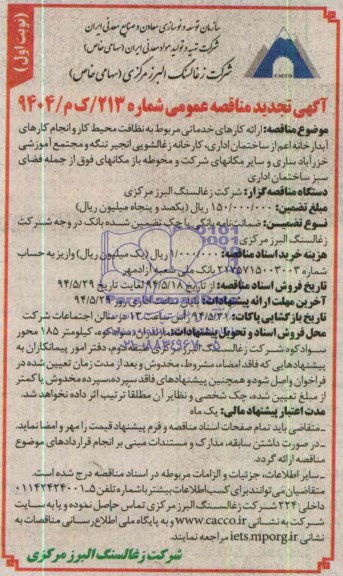 (نوبت اول)
سازمان توسعه و نوسازی معادن و صنایع معدنی ایران
شرکت تهیه و تولید مواد معدنی ایران (سهامی خاص)
شرکت زغالسنگ البرز مرکزی (سهامی خاص)
CACCO
آگهی تجدید مناقصه عمومی شماره ۲۱۳/ک م/۹۴۰۴
موضوع مناقصه: ارائه کارهای خدماتی مربوط به نظافت محیط کار و انجام کارهای
آبدارخانه اعم از ساختمان اداری، کارخانه زغالشویی انجیر تنگه و مجتمع آموزشی
خزرآباد ساری و سایر مکانهای شرکت و محوطه باز مکانهای فوق از جمله فضای
سبز ساختمان اداری
دستگاه مناقصه گزار: شرکت زغالسنگ البرز مرکزی
مبلغ تضمین: ۱۵۰/۰۰۰/۰۰۰ ریال (یکصد و پنجاه میلیون ریال)
نوع تضمین: ضمانت نامه بانکی یا چک تضمین شده بانک در وجه شرکت
زغالسنگ البرز مرکزی
هزینه خرید اسناد مناقصه: ۱/۰۰۰/۰۰۰ ریال (یک میلیون ریال) واریز به حساب
شماره ۲۱۷۵۷۱۵۰۰۳۰۰۳ بانک ملی شعبه آزادمهر
تاریخ فروش اسناد مناقصه: از تاریخ ۹۴/۵/۱۸ لغایت تاریخ ۹۴/۵/۲۹
آخرین مهلت ارائه پیشنهادات: پایان ساعت اداری روز
تاریخ بازگشایی پاکات: رأس ساعت ۱۳ در سالن اجتماعات شرکت
محل فروش اسناد و تحویل پیشنهادات: مازندران، سوادکوه، کیلومتر ۱۸۵ محور
سوادکوه شرکت زغالسنگ البرز مرکزی، طبقه دوم، دفتر امور پیمانکاران به
پیشنهادهایی که فاقد امضاء، مشروط، مخدوش و بعد از مدت زمان تعیین شده در
فراخوان واصل شود و همچنین پیشنهادهای فاقد سپرده، سپرده مخدوش یا کمتر
از مبلغ تعیین شده، چک شخصی و نظایر آن مطلقا ترتیب اثر داده نخواهد شد.
مدت اعتبار پیشنهاد مالی: یک ماه
ـ متقاضی باید تمام صفحات اسناد مناقصه و فرم پیشنهاد قیمت را مهر و امضا نماید.
ـ در صورت داشتن سابقه، مدارک و مستندات مبنی بر انجام قراردادهای موضوع
مناقصه ارائه گردد.
ـ سایر اطلاعات، جزئیات و الزامات مربوطه در اسناد مناقصه درج شده است.
متقاضیان می توانند برای کسب اطلاعات بیشتر با شماره تلفن ۵ـ۰۱۱۴۲۴۲۴۰۰۱
داخلی ۲۲۴ شرکت زغالسنگ البرز مرکزی تماس حاصل نموده و یا به سایت
شرکت به نشانی www.cacco.ir و به پایگاه ملی اطلاع رسانی مناقصات به
نشانی iets.mporg.ir مراجعه نمایند.
شرکت زغالسنگ البرز مرکزی